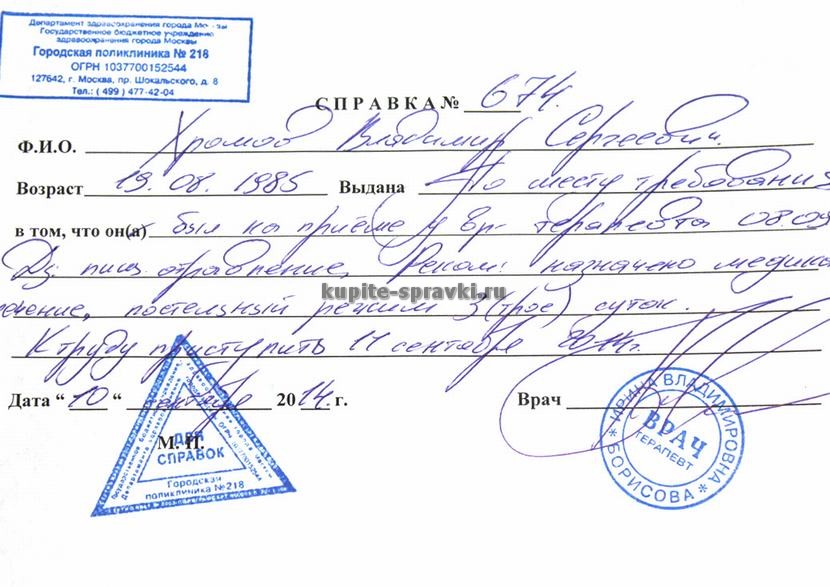 Департамент здравоохранения города Москвы
Государственное бюджетное учреждение
здравоохранения города Москвы
Городская поликлиника № 218
ОГРН 1037700152544
127642, г. Москва, пр. Шокальского, д. 8
Тел.: ( 499 ) 477-42-04
СПРАВКА № 674.
Ф.И.О. Хромов Владимир Сергеевич.
Возраст 19.08. 1985 Выдана По месту требования
в том, что он(а) был на приёме у вр- терапевта 08.09
Дз: пищ. отравление. Реком: назначено медика
ечение, постельный режим 3 (трое) суток.
kupite-spravki.ru
К труду приступить 11 сентября 2014г.
Дата “ 10 “ сентября 2014 г. Врач
М. П.
ДЛЯ
СПРАВОК
Городская
поликлиника №218
* ИРИНА ВЛАДИМИРОВНА * БОРИСОВА
ВРАЧ
ТЕРАПЕВТ